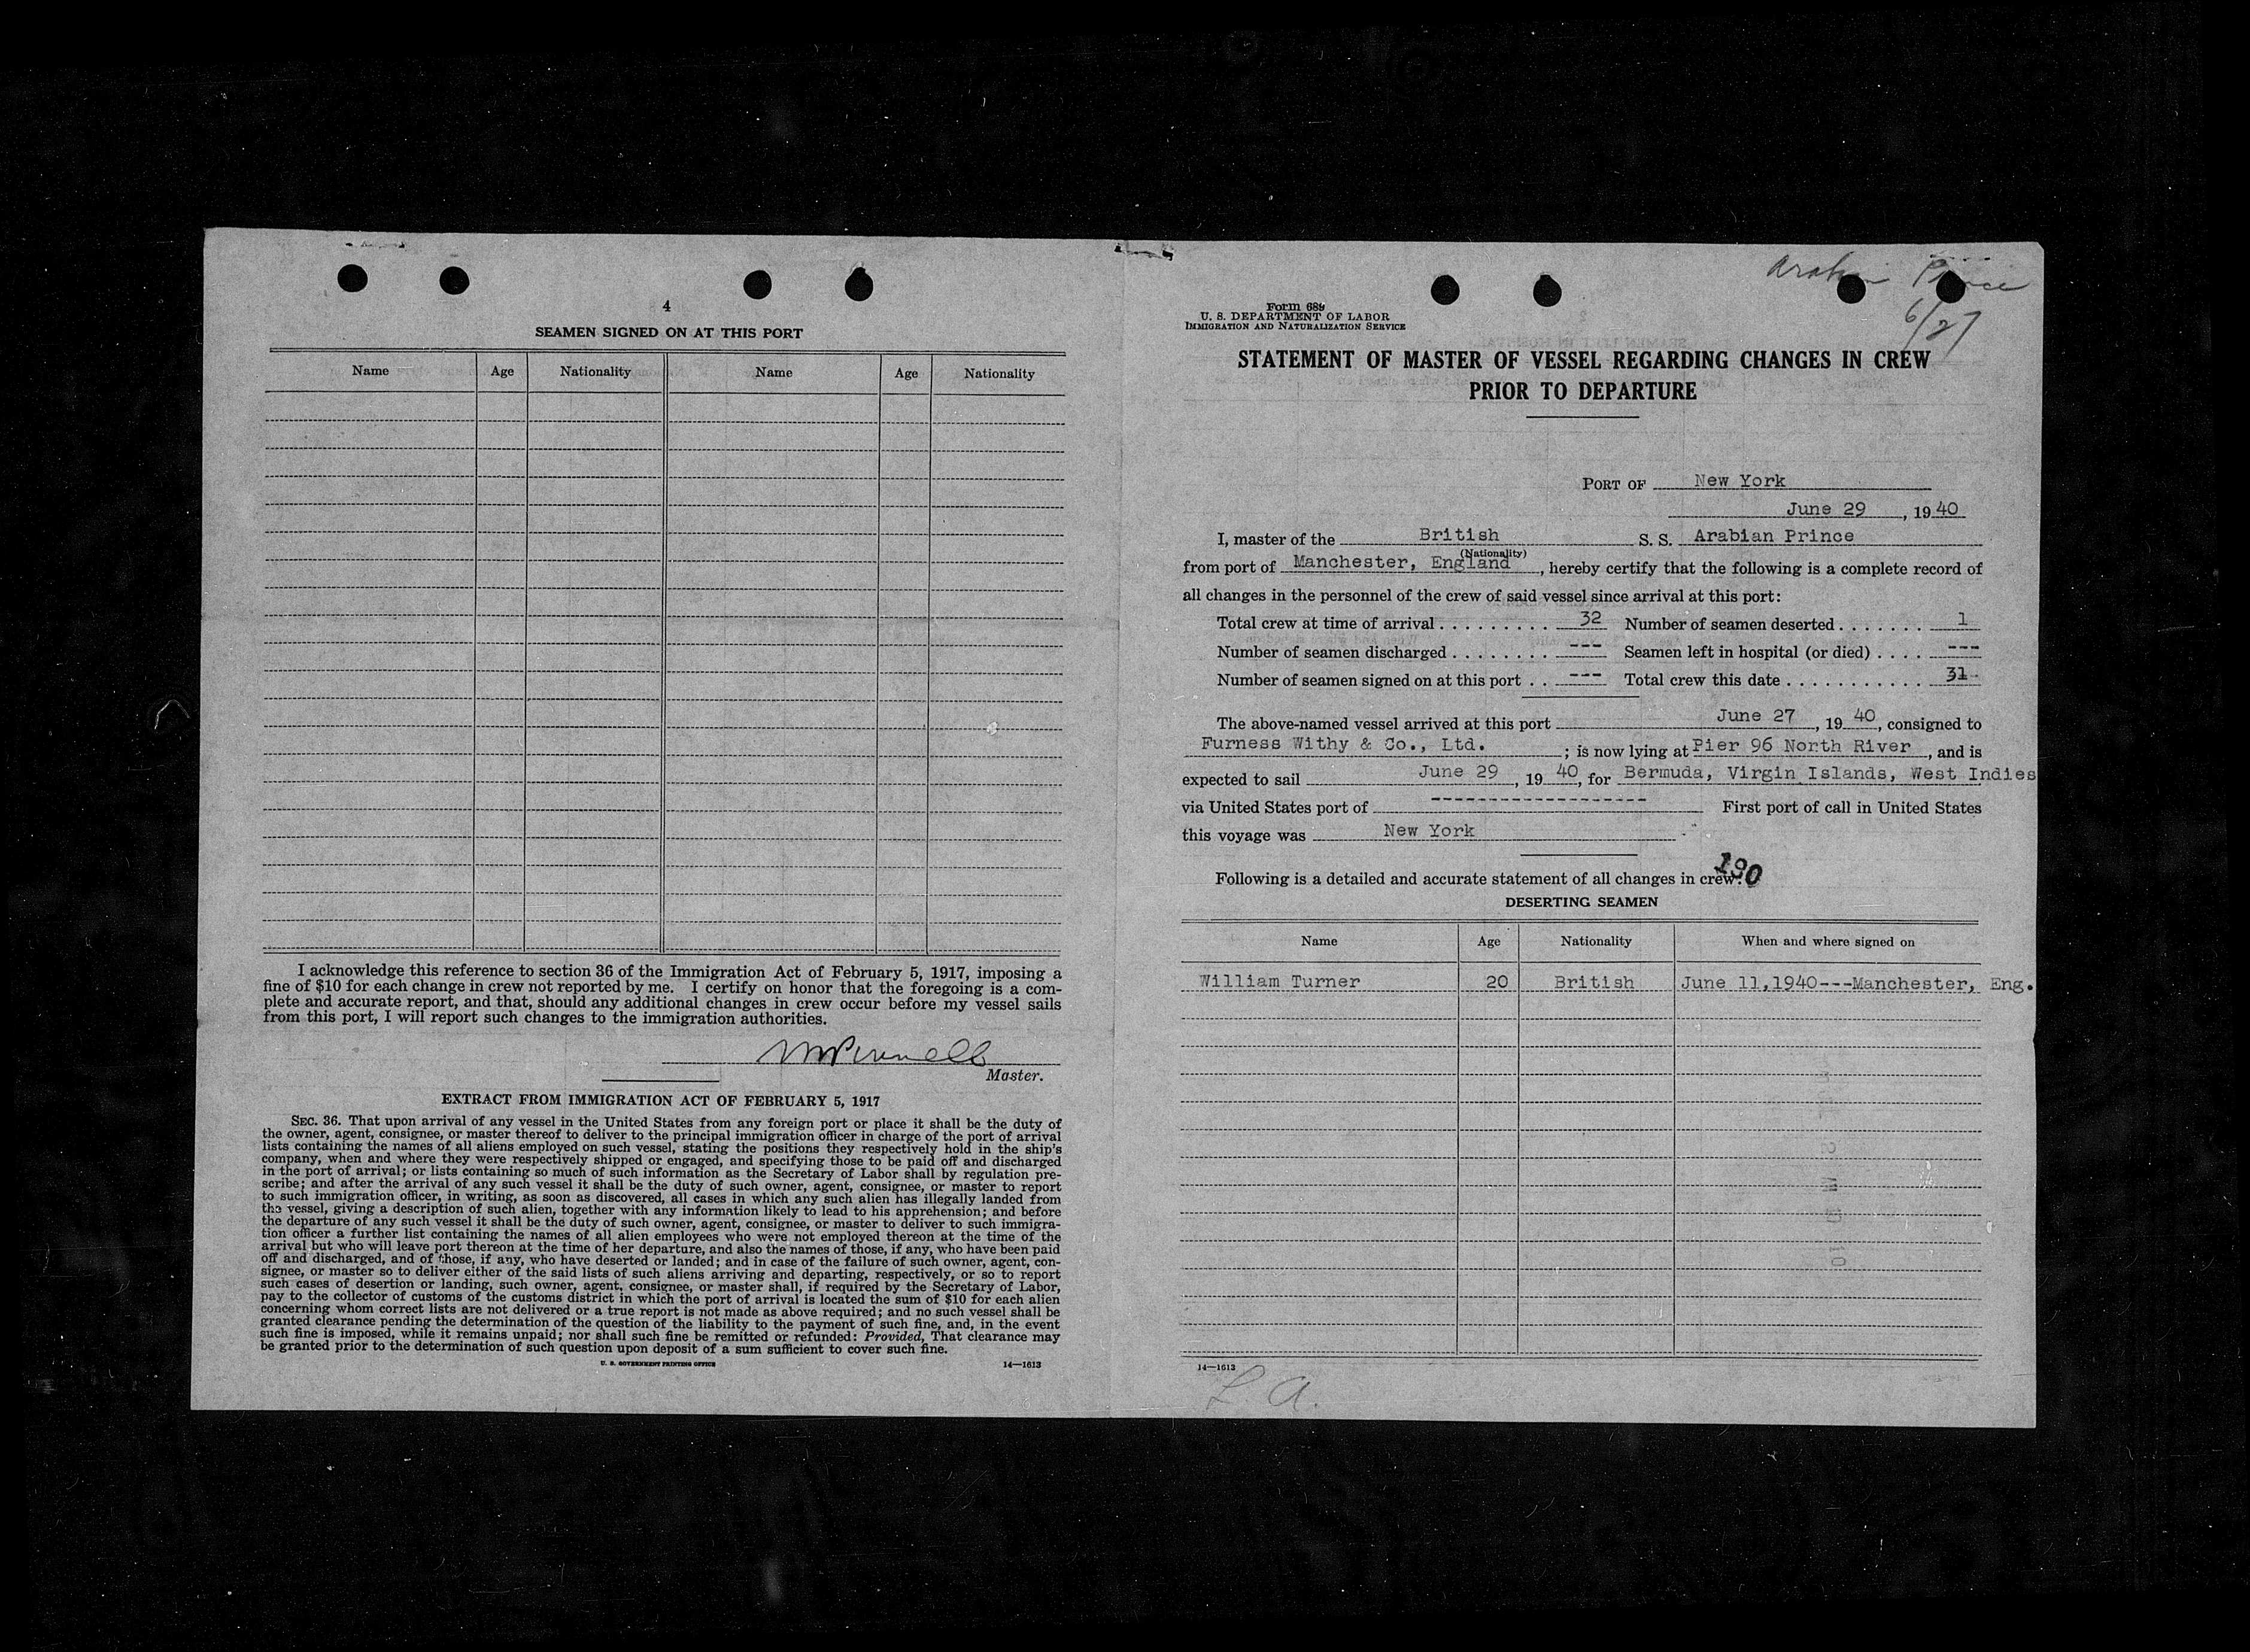 4
SEAMEN SIGNED ON AT THIS PORT
Name Age Nationality Name Age Nationality
I acknowledge this reference to section 36 of the Immigration Act of February 5, 1917, imposing a
fine of $10 for each change in crew not reported by me. I certify on honor that the foregoing is a com-
plete and accurate report, and that, should any additional changes in crew occur before my vessel sails
from this port, I will report such changes to the immigration authorities.
Master.
EXTRACT FROM IMMIGRATION ACT OF FEBRUARY 5, 1917
SEC. 36. That upon arrival of any vessel in the United States from any foreign port or place it shall be the duty of
the owner, agent, consignee, or master thereof to deliver to the principal immigration officer in charge of the port of arrival
lists containing the names of all aliens employed on such vessel, stating the positions they respectively hold in the ship's
company, when and where they were respectively shipped or engaged, and specifying those to be paid off and discharged
in the port of arrival; or lists containing so much of such information as the Secretary of Labor shall by regulation pre-
scribe; and after the arrival of any such vessel it shall be the duty of such owner, agent, consignee, or master to report
to such immigration officer, in writing, as soon as discovered, all cases in which any such alien has illegally landed from
the vessel, giving a description of such alien, together with any information likely to lead to his apprehension; and before
the departure of any such vessel it shall be the duty of such owner, agent, consignee, or master to deliver to such immigra-
tion officer a further list containing the names of all alien employees who were not employed thereon at the time of the
arrival but who will leave port thereon at the time of her departure, and also the names of those, if any, who have been paid
off and discharged, and of those, if any, who have deserted or landed; and in case of the failure of such owner, agent, con-
signee, or master so to deliver either of the said lists of such aliens arriving and departing, respectively, or so to report
such cases of desertion or landing, such owner, agent, consignee, or master shall, if required by the Secretary of Labor,
pay to the collector of customs of the customs district in which the port of arrival is located the sum of $10 for each alien
concerning whom correct lists are not delivered or a true report is not made as above required; and no such vessel shall be
granted clearance pending the determination of the question of the liability to the payment of such fine, and, in the event
such fine is imposed, while it remains unpaid; nor shall such fine be remitted or refunded: Provided, That clearance may
be granted prior to the determination of such question upon deposit of a sum sufficient to cover such fine.
U. S. GOVERNMENT PRINTING OFFICE 14—1613
Arabian Prince
6/27
Form 689
U. S. DEPARTMENT OF LABOR
IMMIGRATION AND NATURALIZATION SERVICE
STATEMENT OF MASTER OF VESSEL REGARDING CHANGES IN CREW
PRIOR TO DEPARTURE
PORT OF New York
June 29, 1940
I, master of the British S. S. Arabian Prince
(Nationality)
from port of Manchester, England, hereby certify that the following is a complete record of
all changes in the personnel of the crew of said vessel since arrival at this port:
Total crew at time of arrival . . . . . . . . . 32 Number of seamen deserted . . . . . . . 1
Number of seamen discharged . . . . . . . . --- Seamen left in hospital (or died) . . . . ---
Number of seamen signed on at this port . . --- Total crew this date . . . . . . . . . . . 31
The above-named vessel arrived at this port June 27, 1940, consigned to
Furness Withy & Co., Ltd. ; is now lying at Pier 96 North River, and is
expected to sail June 29, 1940, for Bermuda, Virgin Islands, West Indies
via United States port of -------------------- First port of call in United States
this voyage was New York
190
Following is a detailed and accurate statement of all changes in crew:
DESERTING SEAMEN
Name Age Nationality When and where signed on
William Turner 20 British June 11,1940---Manchester, Eng.
14—1613
L. A.